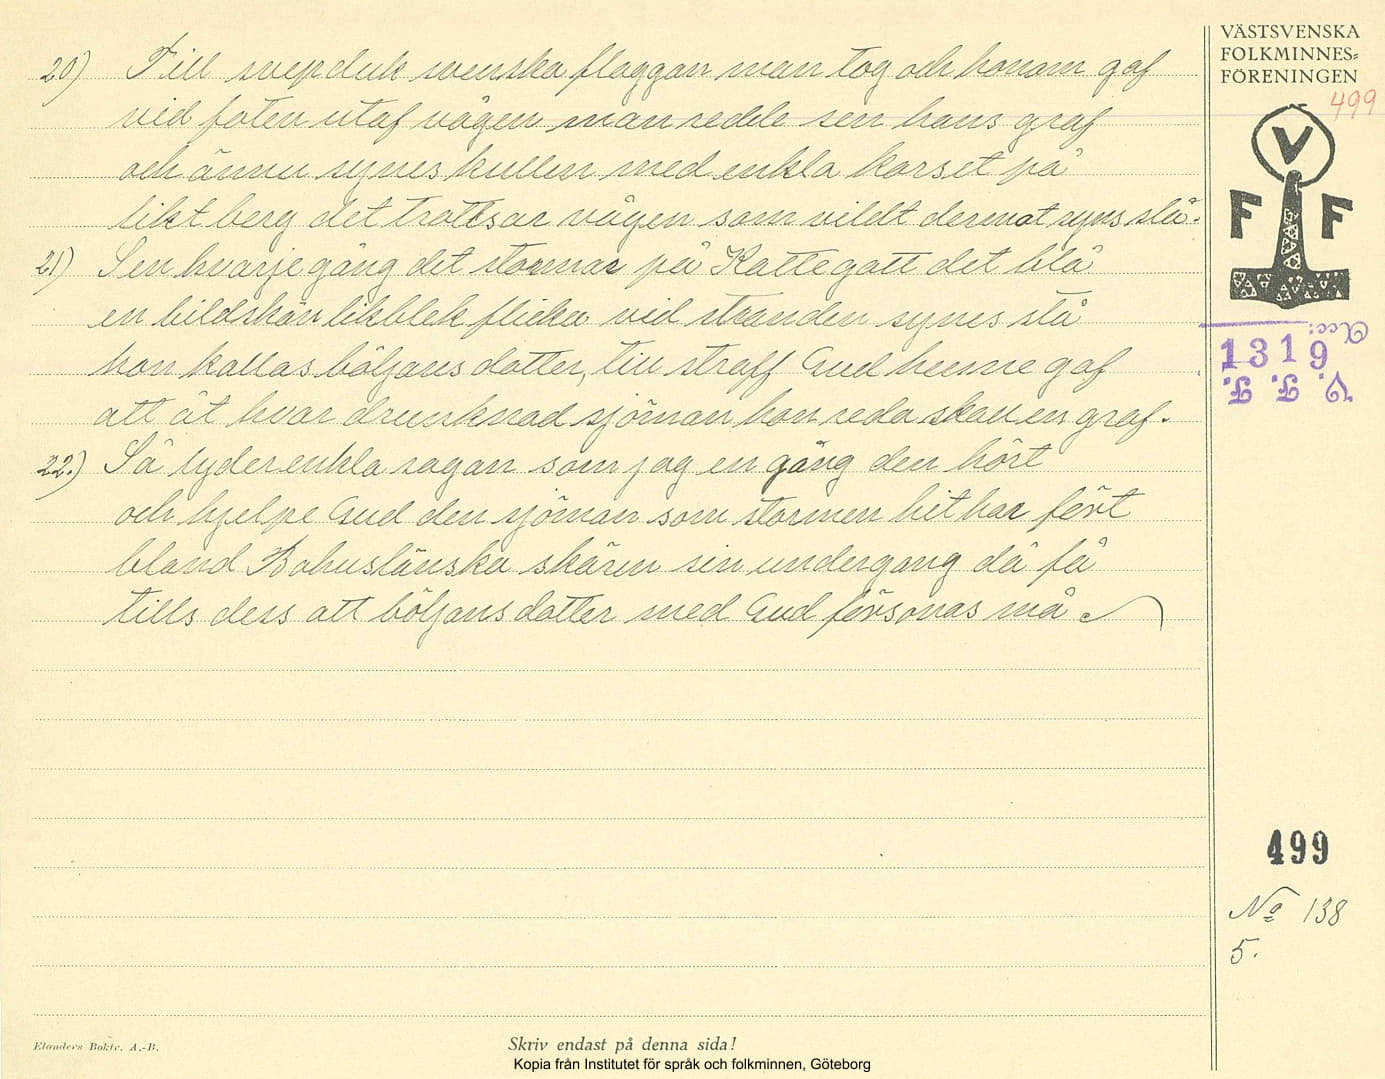 20) Till svepduk svenska flaggan man tog och honom gaf
vid foten utaf vågen man redde sen hans graf
och ännu synes kullen med enkla korset på
likt berg det trottsar vågen som vildt deremot syns slå.
21) Sen hvarje gång det stormar på Kattegatt det blå
en bildskön likblek flicka vid stranden synes stå
hon kallas böljans dotter, till straff Gud henne gaf
att åt hvar drunknad sjöman hon reda skall en graf.
22.) Så lyder enkla sagan som jag en gång den hört
och hjelpe Gud den sjöman som stormen hit har fört
bland Bohuslänska skären sin undergang då få
tills dess att böljans dotter med Gud försonas må
VÄSTSVENSKA
FOLKMINNES-
FÖRENINGEN
499
V
F F
Acc:
1319
V. F. F.
499
No 138
5.
Elanders Boktr. A.-B.
Skriv endast på denna sida!
Kopia från Institutet för språk och folkminnen, Göteborg